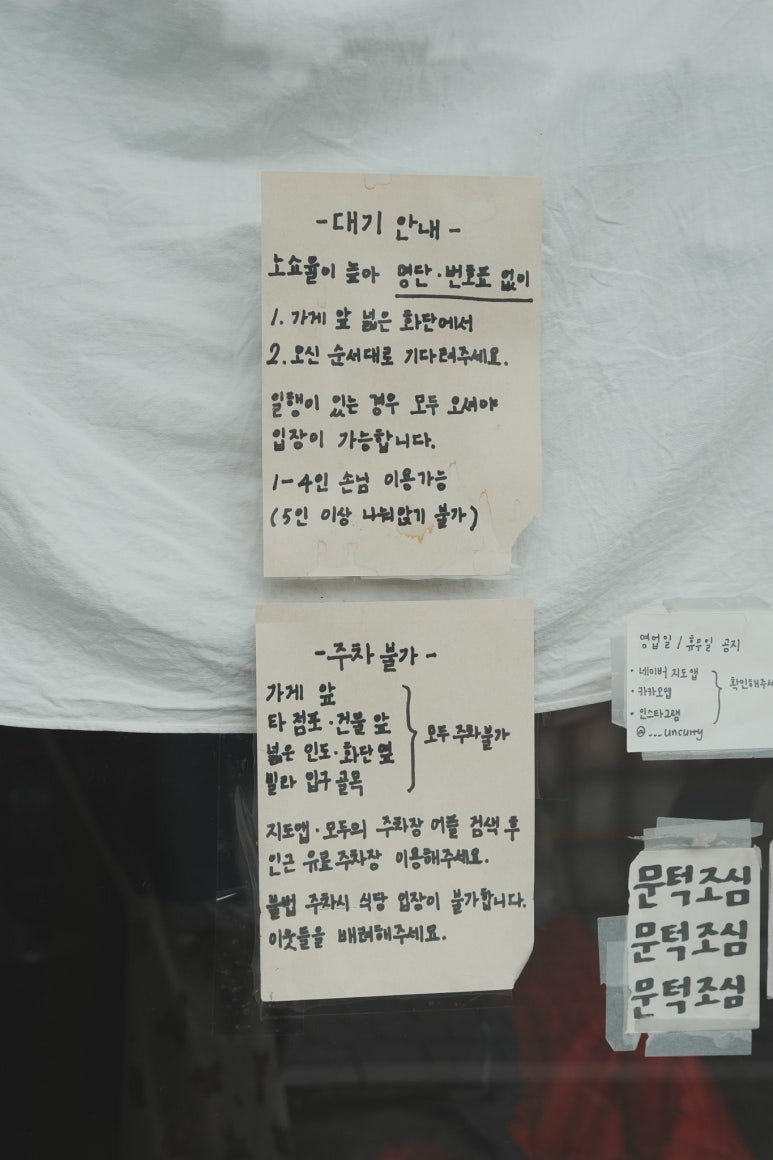 -대기 안내-
노쇼율이 높아 명단·번호표 없이
1. 가게 앞 넓은 화단에서
2. 오신 순서대로 기다려주세요.
일행이 있는 경우 모두 오셔야
입장이 가능합니다.
1-4인 손님 이용가능
(5인 이상 나눠앉기 불가)
-주차 불가-
가게 앞
타 점포·건물 앞
넓은 인도·화단 옆
빌라 입구 골목
모두 주차불가
지도앱·모두의 주차장 어플 검색 후
인근 유료주차장 이용해주세요.
불법 주차시 식당 입장이 불가합니다.
이웃들을 배려해주세요.
영업일 / 휴무일 공지
· 네이버 지도앱
· 카카오맵
· 인스타그램
@___uncurry
확인해주세
문턱조심
문턱조심
문턱조심